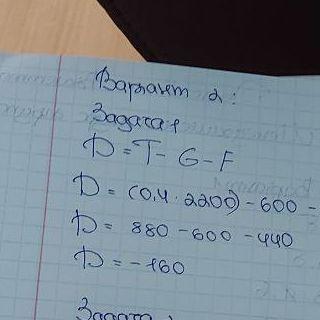 Вариант 2:
Задача 1
D = T - G - F
D = (0,4 · 2200) - 600 -
D = 880 - 600 - 440
D = -160
Задача